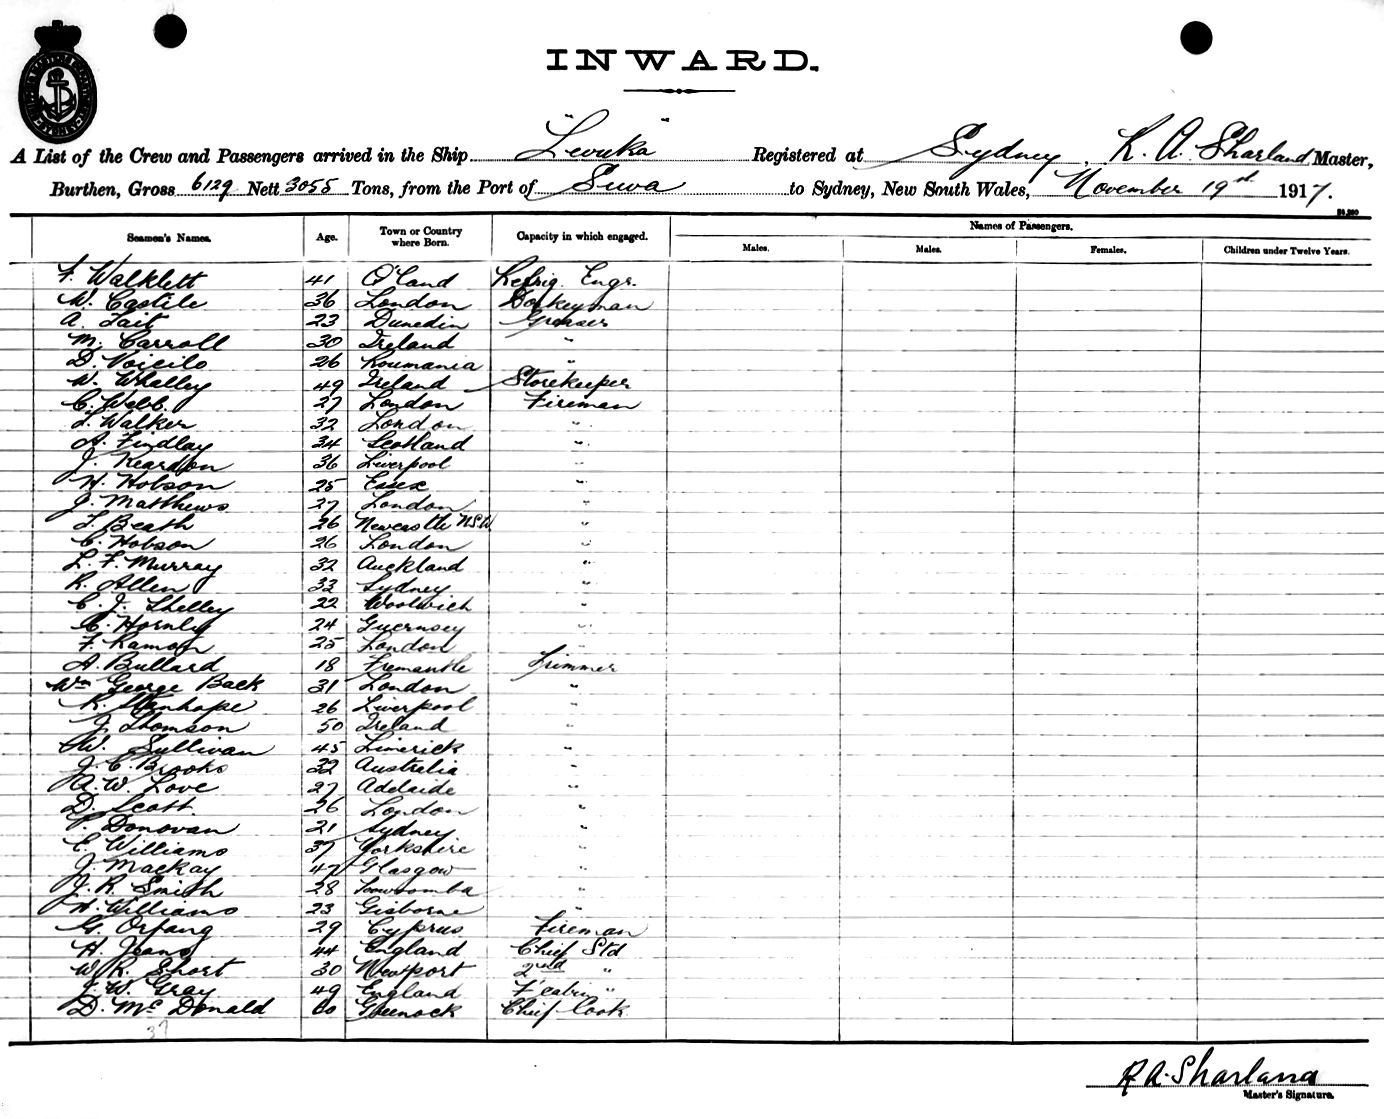 INWARD.
A List of the Crew and Passengers arrived in the Ship "Levuka" Registered at Sydney, R. A. Sharland Master,
Burthen, Gross 6129 Nett 3055 Tons, from the Port of Suva to Sydney, New South Wales, November 19th 1917.
Seamen's Names. Age. Town or Country where Born. Capacity in which engaged. Names of Passengers.
Males. Males. Females. Children under Twelve Years.
F. Walklett 41 O'land Refrig. Engr.
W. Castile 36 London Donkeyman
A. Tait 23 Dunedin Greaser
M. Carroll 30 Ireland "
D. Voicilo 26 Roumania "
W. Whalley 49 Ireland Storekeeper
C. Webb. 27 London Fireman
T. Walker 32 London "
A. Findlay 34 Scotland "
J. Reardon 36 Liverpool "
H. Hobson 25 Essex "
J. Matthews 27 London "
T. Beath 26 Newcastle N.S.W "
C. Hobson 26 London "
L. F. Murray 32 Auckland "
R. Allen 33 Sydney "
C. J. Shelley 22 Woolwich "
C. Hornly 24 Guernsey "
F. Ramon 25 London "
A. Bullard 18 Fremantle Trimmer
Wm George Back 31 London "
R. Stanhope 26 Liverpool "
J. Thomson 50 Ireland "
W. Sullivan 45 Limerick "
J. C. Brooks 32 Australia "
A. W. Love 27 Adelaide "
D. Scott 26 London "
P. Donovan 21 Sydney "
E. Williams 37 Yorkshire "
J. Mackay 47 Glasgow "
J. R. Smith 28 Toowoomba "
H. Williams 23 Gisborne "
G. Orfang 29 Cyprus Fireman
H. Jeans 44 England Chief Std
W. R. Short 30 Newport 2nd "
J. W. Gray 49 England F'cabin "
D. McDonald 60 Greenock Chief Cook
37
R. A. Sharland
Master's Signature.